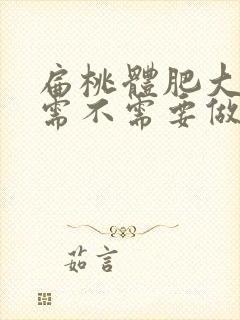 扁桃體肥大
需不需要做
茹言